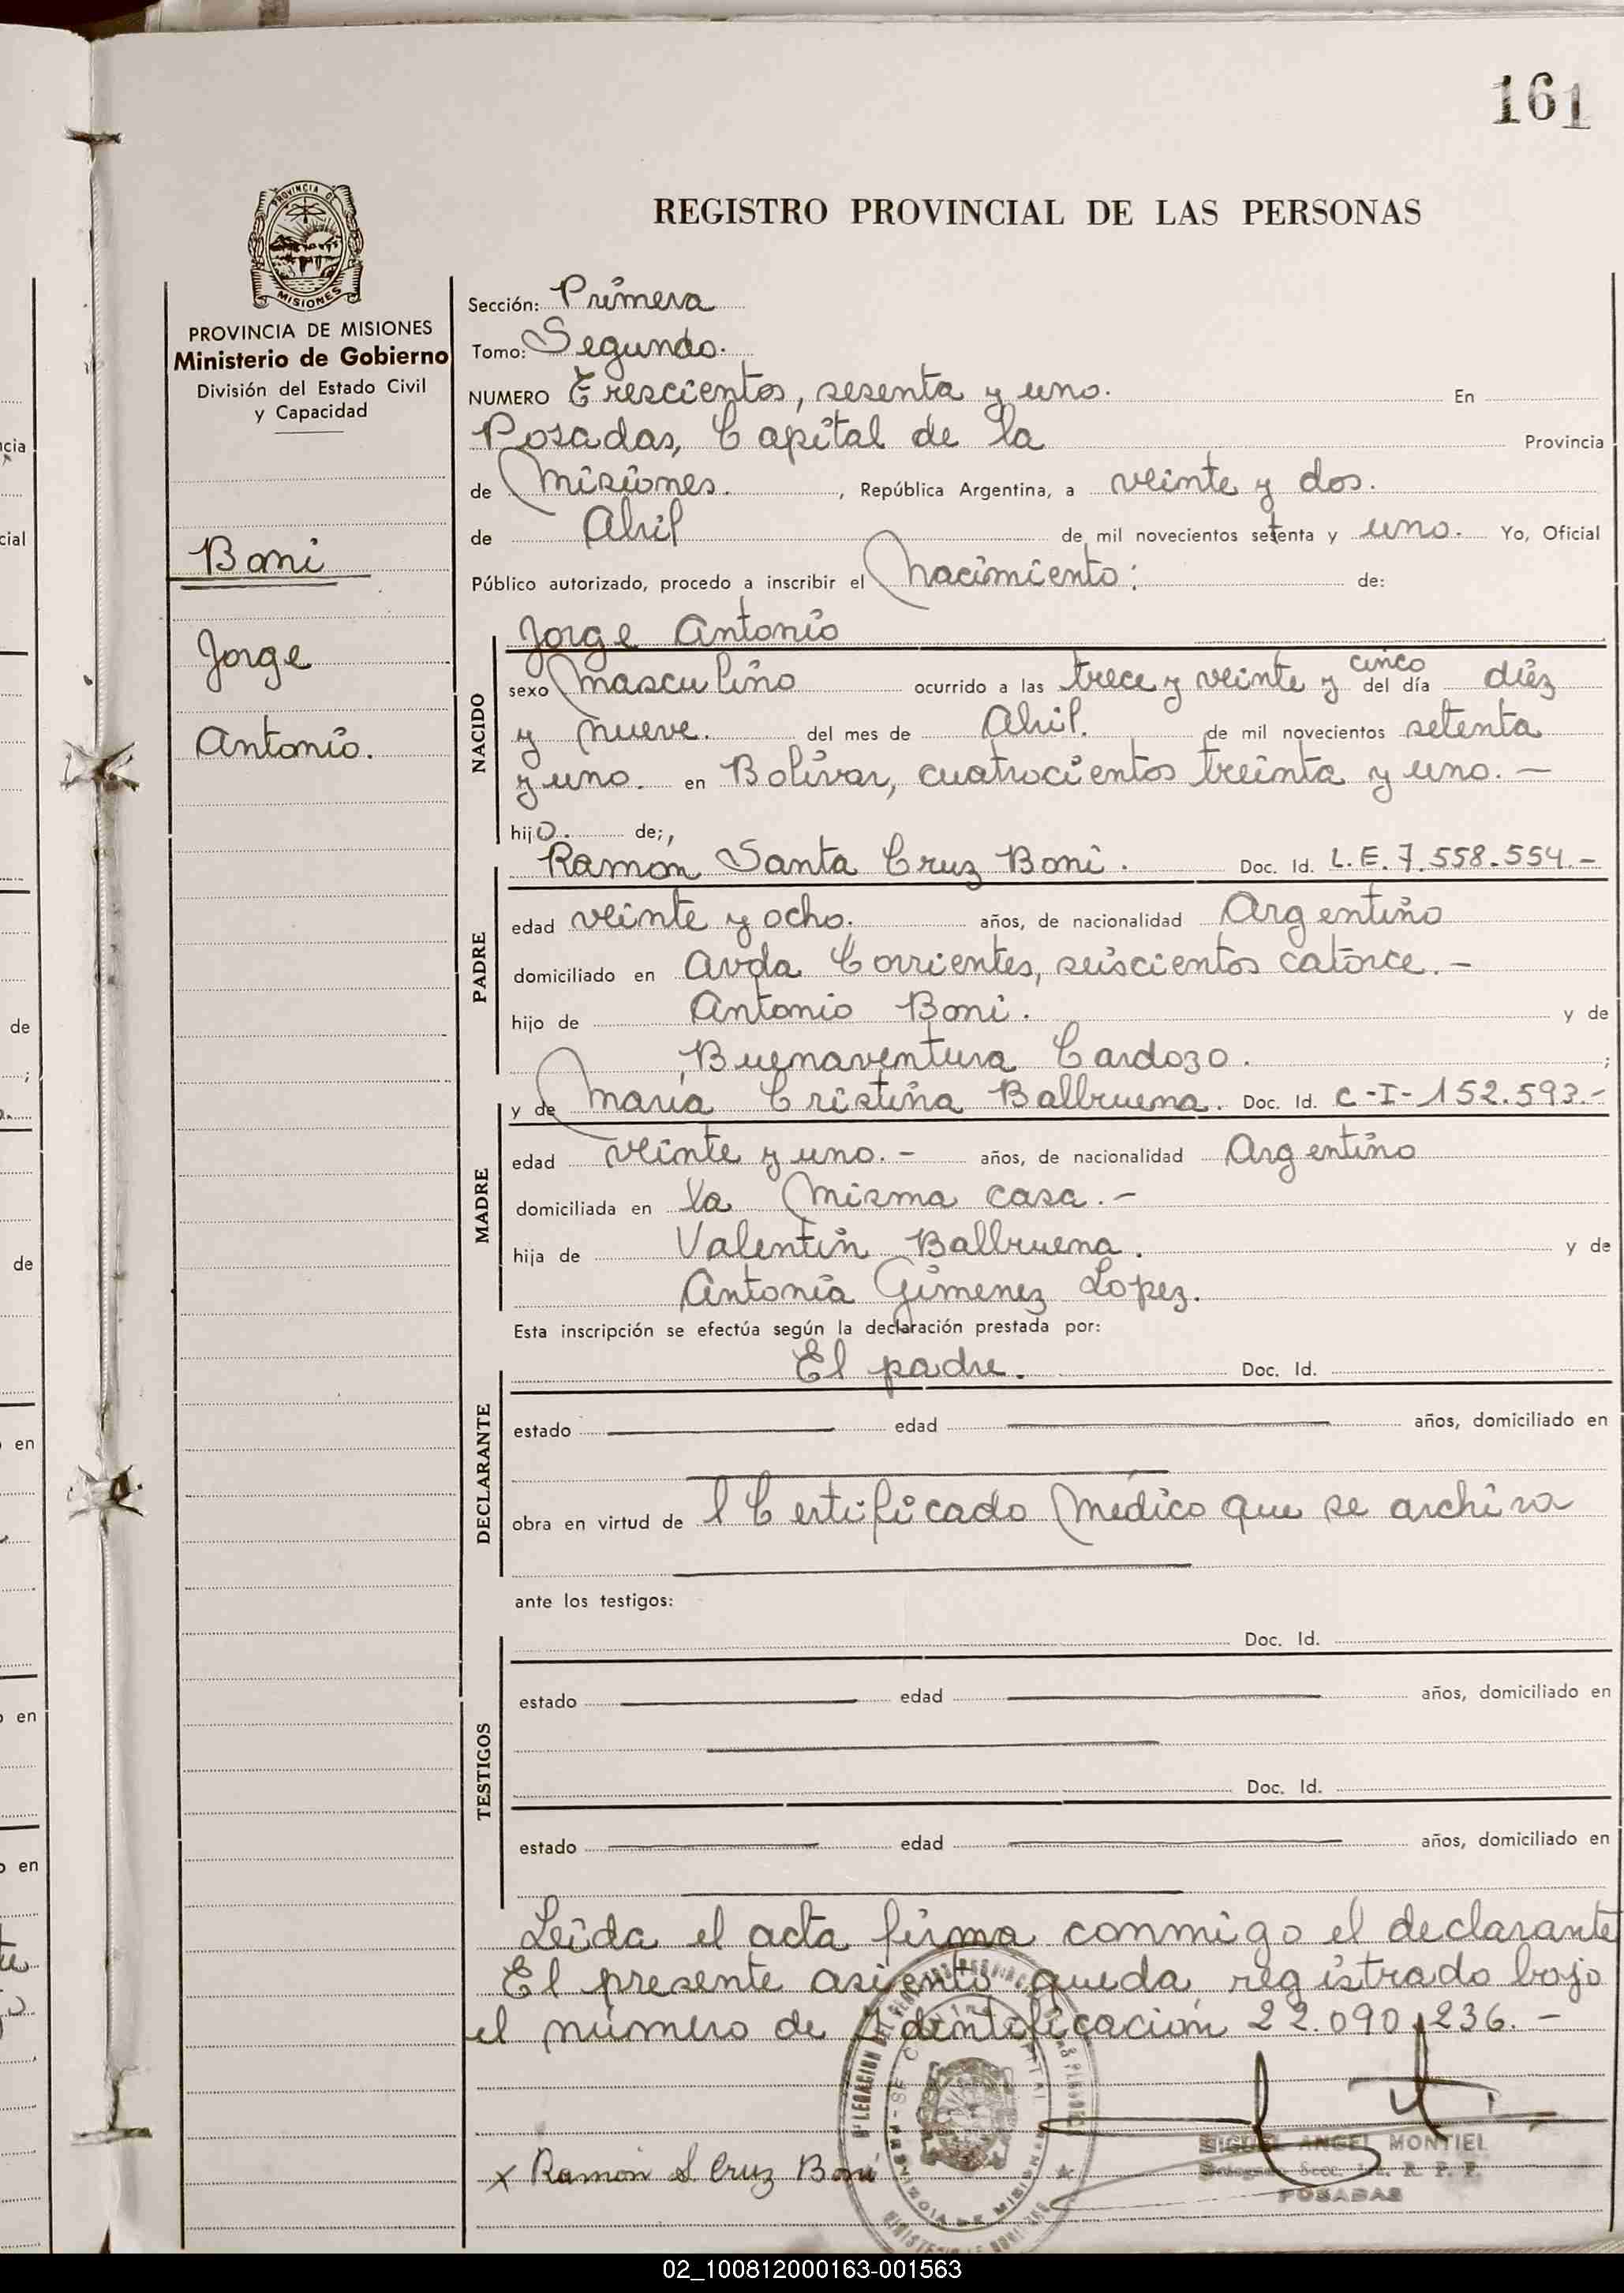 161
PROVINCIA DE
MISIONES
REGISTRO PROVINCIAL DE LAS PERSONAS
PROVINCIA DE MISIONES
Ministerio de Gobierno
División del Estado Civil
y Capacidad
Boni
Jorge
Antonio.
Sección: Primera
Tomo: Segundo.
NUMERO Trescientos, sesenta y uno. En
Posadas, Capital de la Provincia
de Misiones. , República Argentina, a veinte y dos.
de Abril de mil novecientos setenta y uno. Yo, Oficial
Público autorizado, procedo a inscribir el Nacimiento: de:
Jorge Antonio
NACIDO
sexo Masculino ocurrido a las trece y veinte y cinco del día diéz
y nueve. del mes de Abril. de mil novecientos setenta
y uno. en Bolívar, cuatrocientos treinta y uno. —
hijo. de;,
Ramón Santa Cruz Boni. Doc. Id. L.E. 7.558.554.-
PADRE
edad veinte y ocho. años, de nacionalidad Argentino
domiciliado en Avda Corrientes, seiscientos catorce. -
hijo de Antonio Boni. y de
Buenaventura Cardozo. ;
y de María Cristina Balbruena. Doc. Id. C-I-152.593.-
MADRE
edad veinte y uno. - años, de nacionalidad Argentino
domiciliada en la misma casa. -
hija de Valentín Balbruena. y de
Antonia Gimenez Lopez.
Esta inscripción se efectúa según la declaración prestada por:
El padre. Doc. Id.
DECLARANTE
estado edad años, domiciliado en
obra en virtud de l Certificado Médico que se archiva
ante los testigos:
Doc. Id.
TESTIGOS
estado edad años, domiciliado en
Doc. Id.
estado edad años, domiciliado en
Leída el acta firma conmigo el declarante
El presente asiento queda registrado bajo
el número de Identificación 22.090.236. -
x Ramon S Cruz Boni
MIGUEL ANGEL MONTIEL
POSADAS
02_100812000163-001563